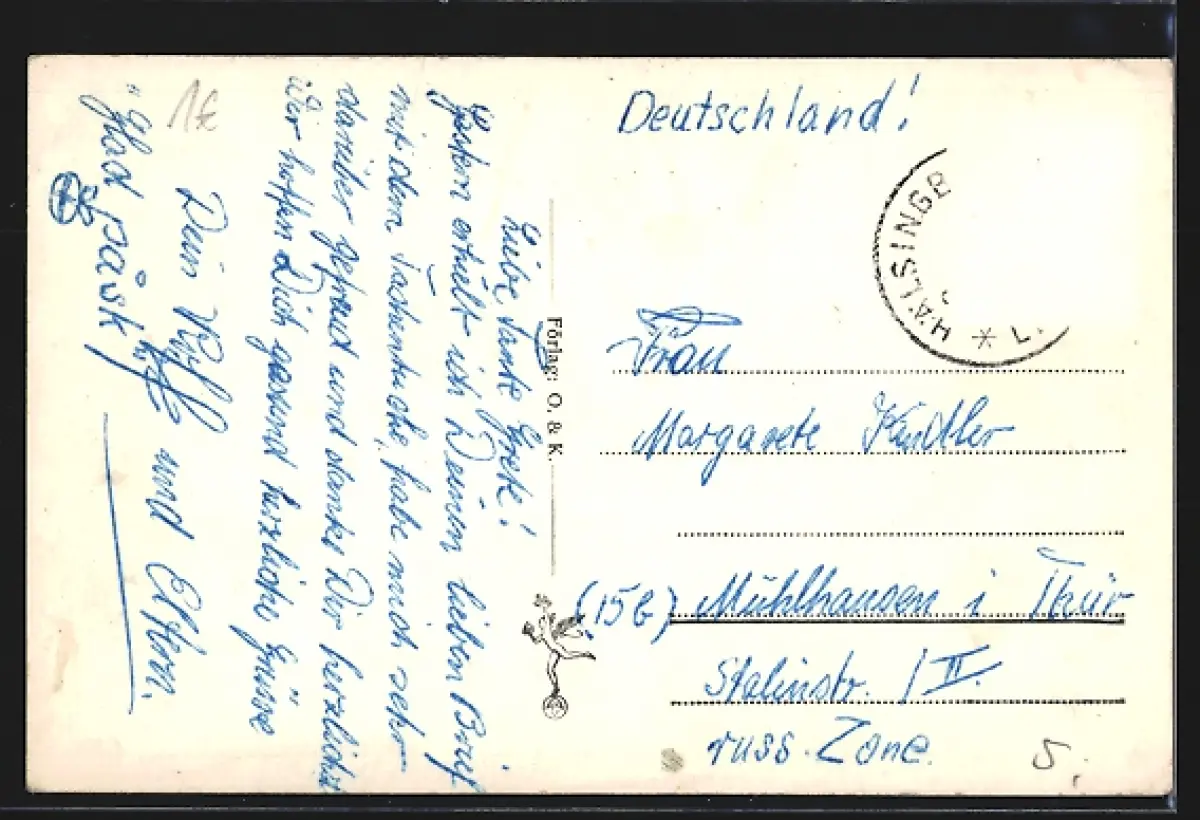 Liebe Tante Grete!
Gestern erhielt ich Deinen lieben Brief
mit dem Taschentuche, habe mich sehr
darüber gefreud und danke Dir herzlichst
Wir hoffen Dich gesund herzliche Grüsse
Dein Rolf und Eltern.
"Glad påsk"
1€
Förlag: O. & K.
Deutschland!
HÄLSINGB
* L.
Frau
Margarete
(15b) Mühlhausen i Thür
Stalinstr. 1 II.
russ. Zone.
5.